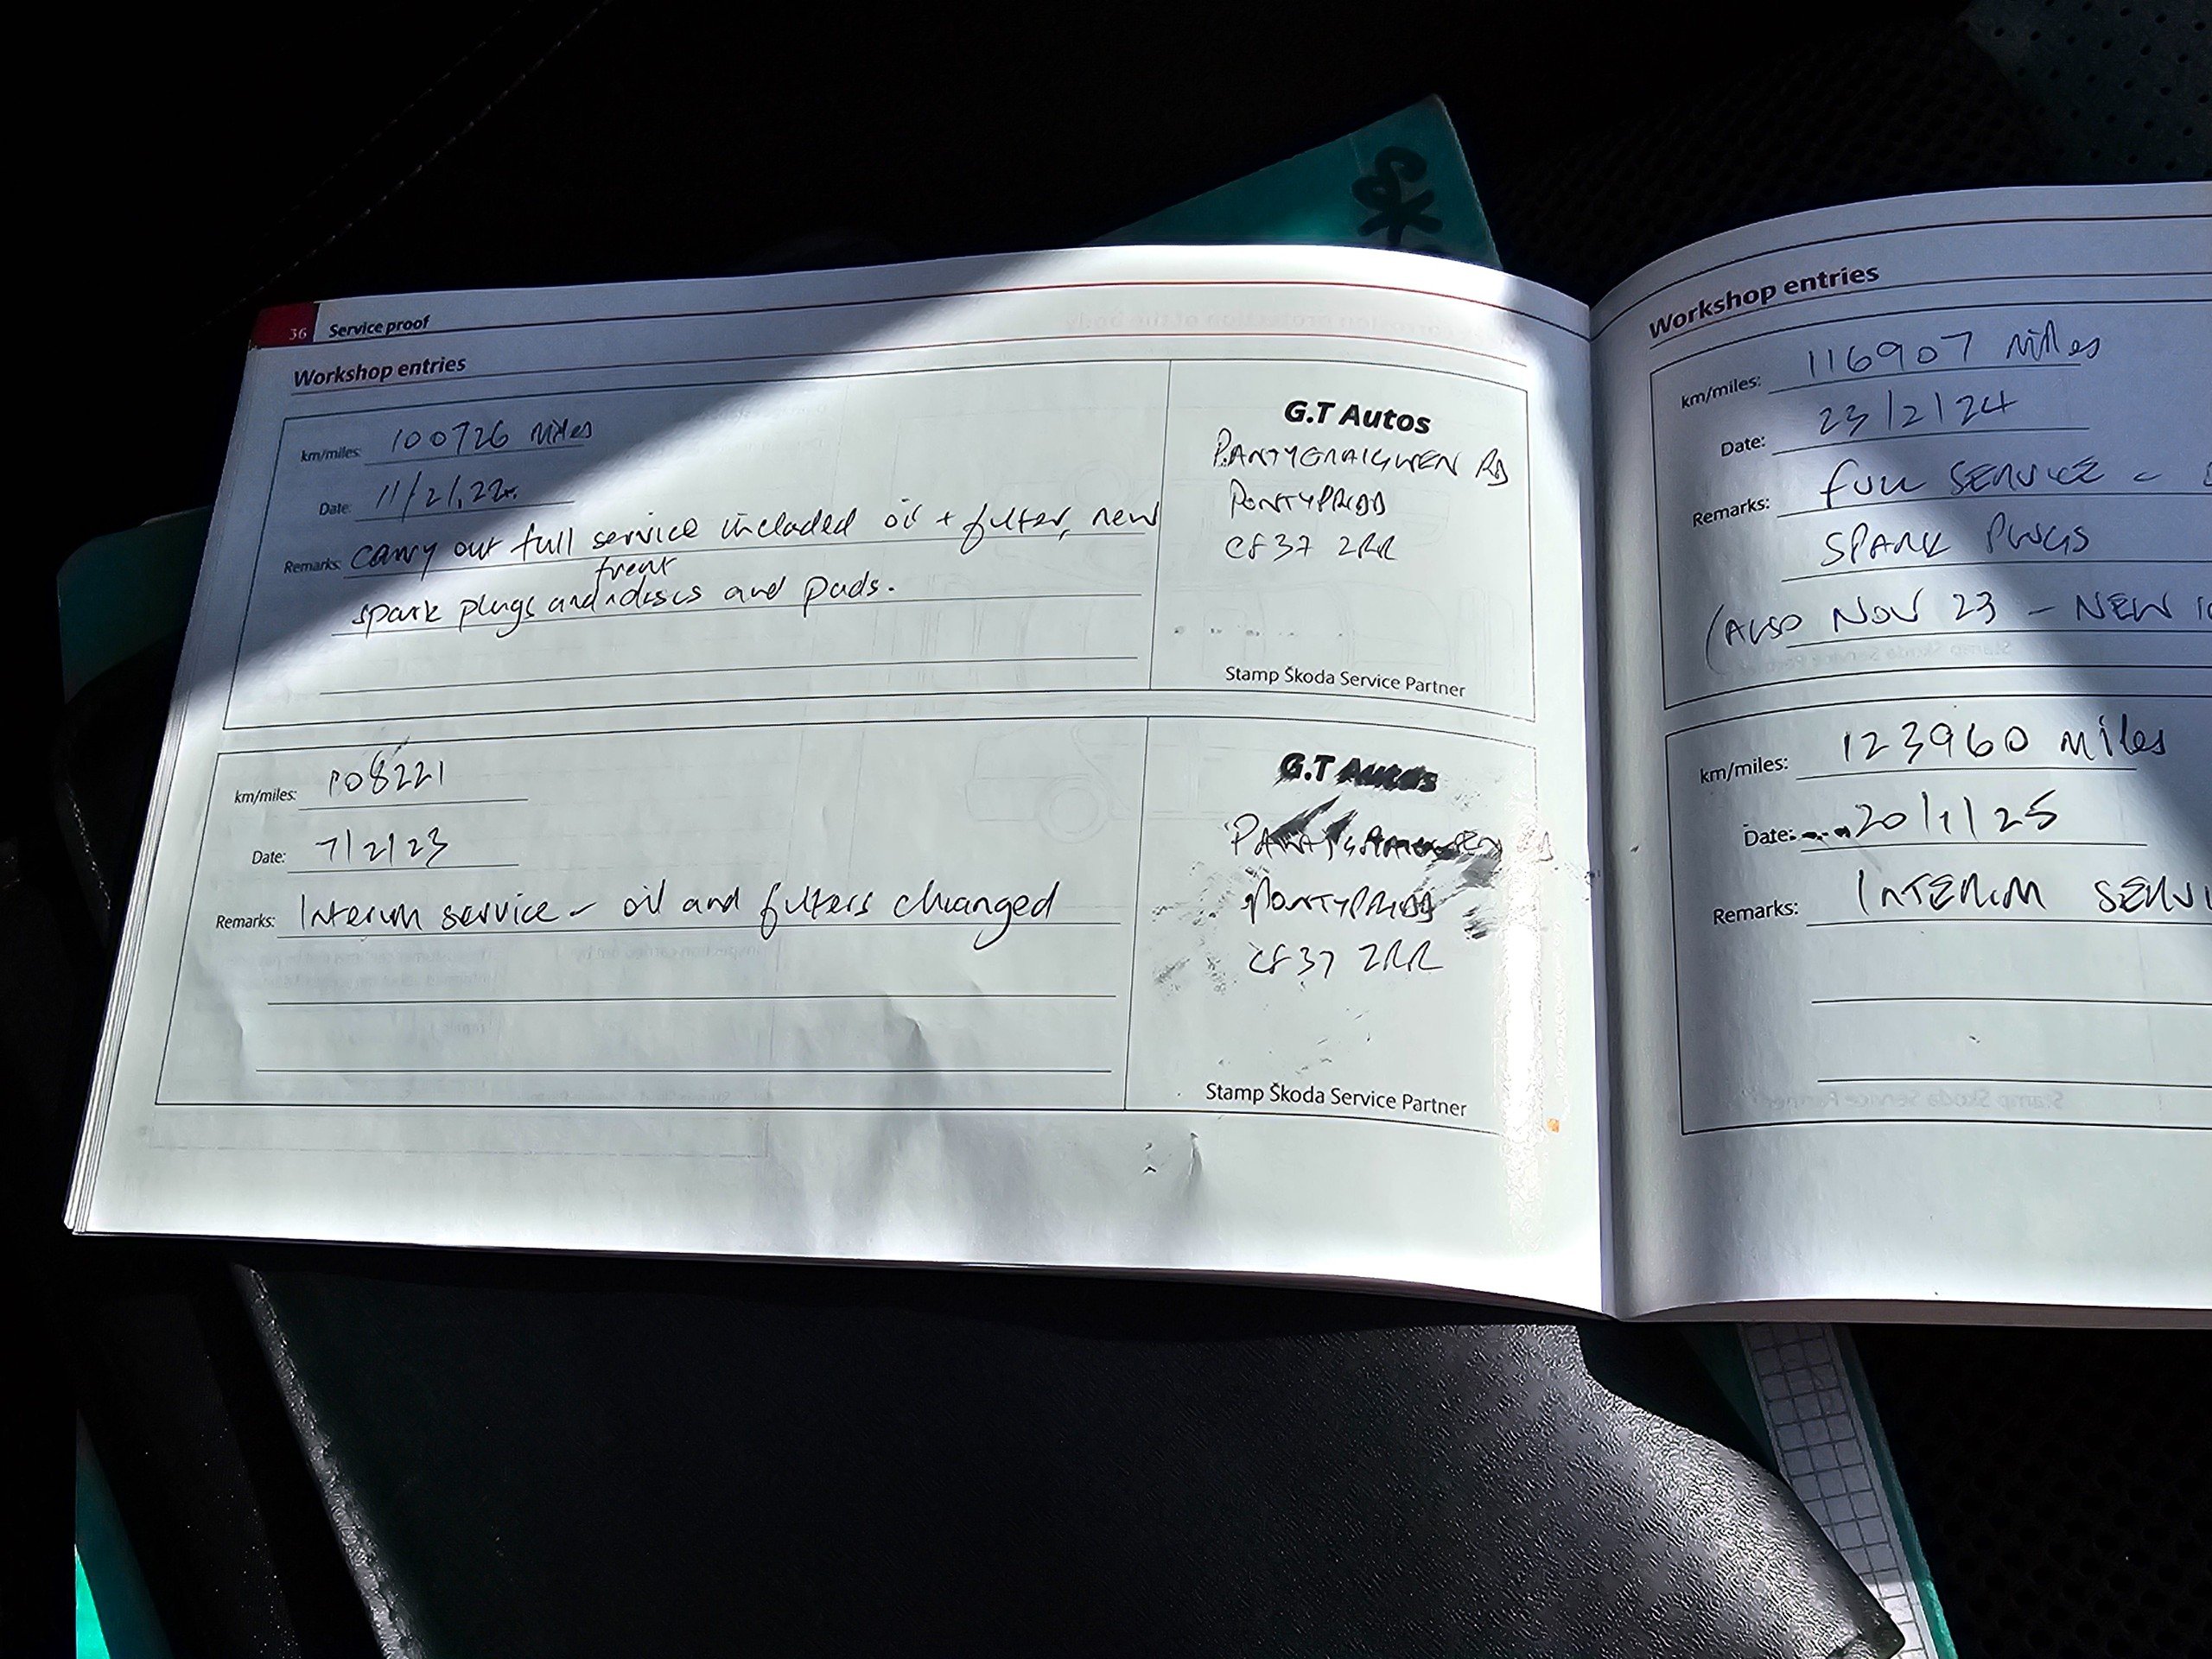 SK
36 Service proof
Workshop entries
km/miles: 100726 Miles
Date: 11/2/22
Remarks: Carry out full service included oil + filter, new
front
spark plugs and ^ discs and pads.
G.T Autos
PANTYGRAIGWEN RD
PONTYPRIDD
CF37 2RR
Stamp Škoda Service Partner
km/miles: 108221
Date: 7/2/23
Remarks: Interim service - oil and filters changed
G.T Autos
PONTYPRIDD
CF37 2RR
Stamp Škoda Service Partner
Workshop entries
km/miles: 116907 Miles
Date: 23/2/24
Remarks: FULL SERVICE -
SPARK PLUGS
(ALSO NOV 23 - NEW
km/miles: 123960 Miles
Date: 20/1/25
Remarks: INTERIM SERVI